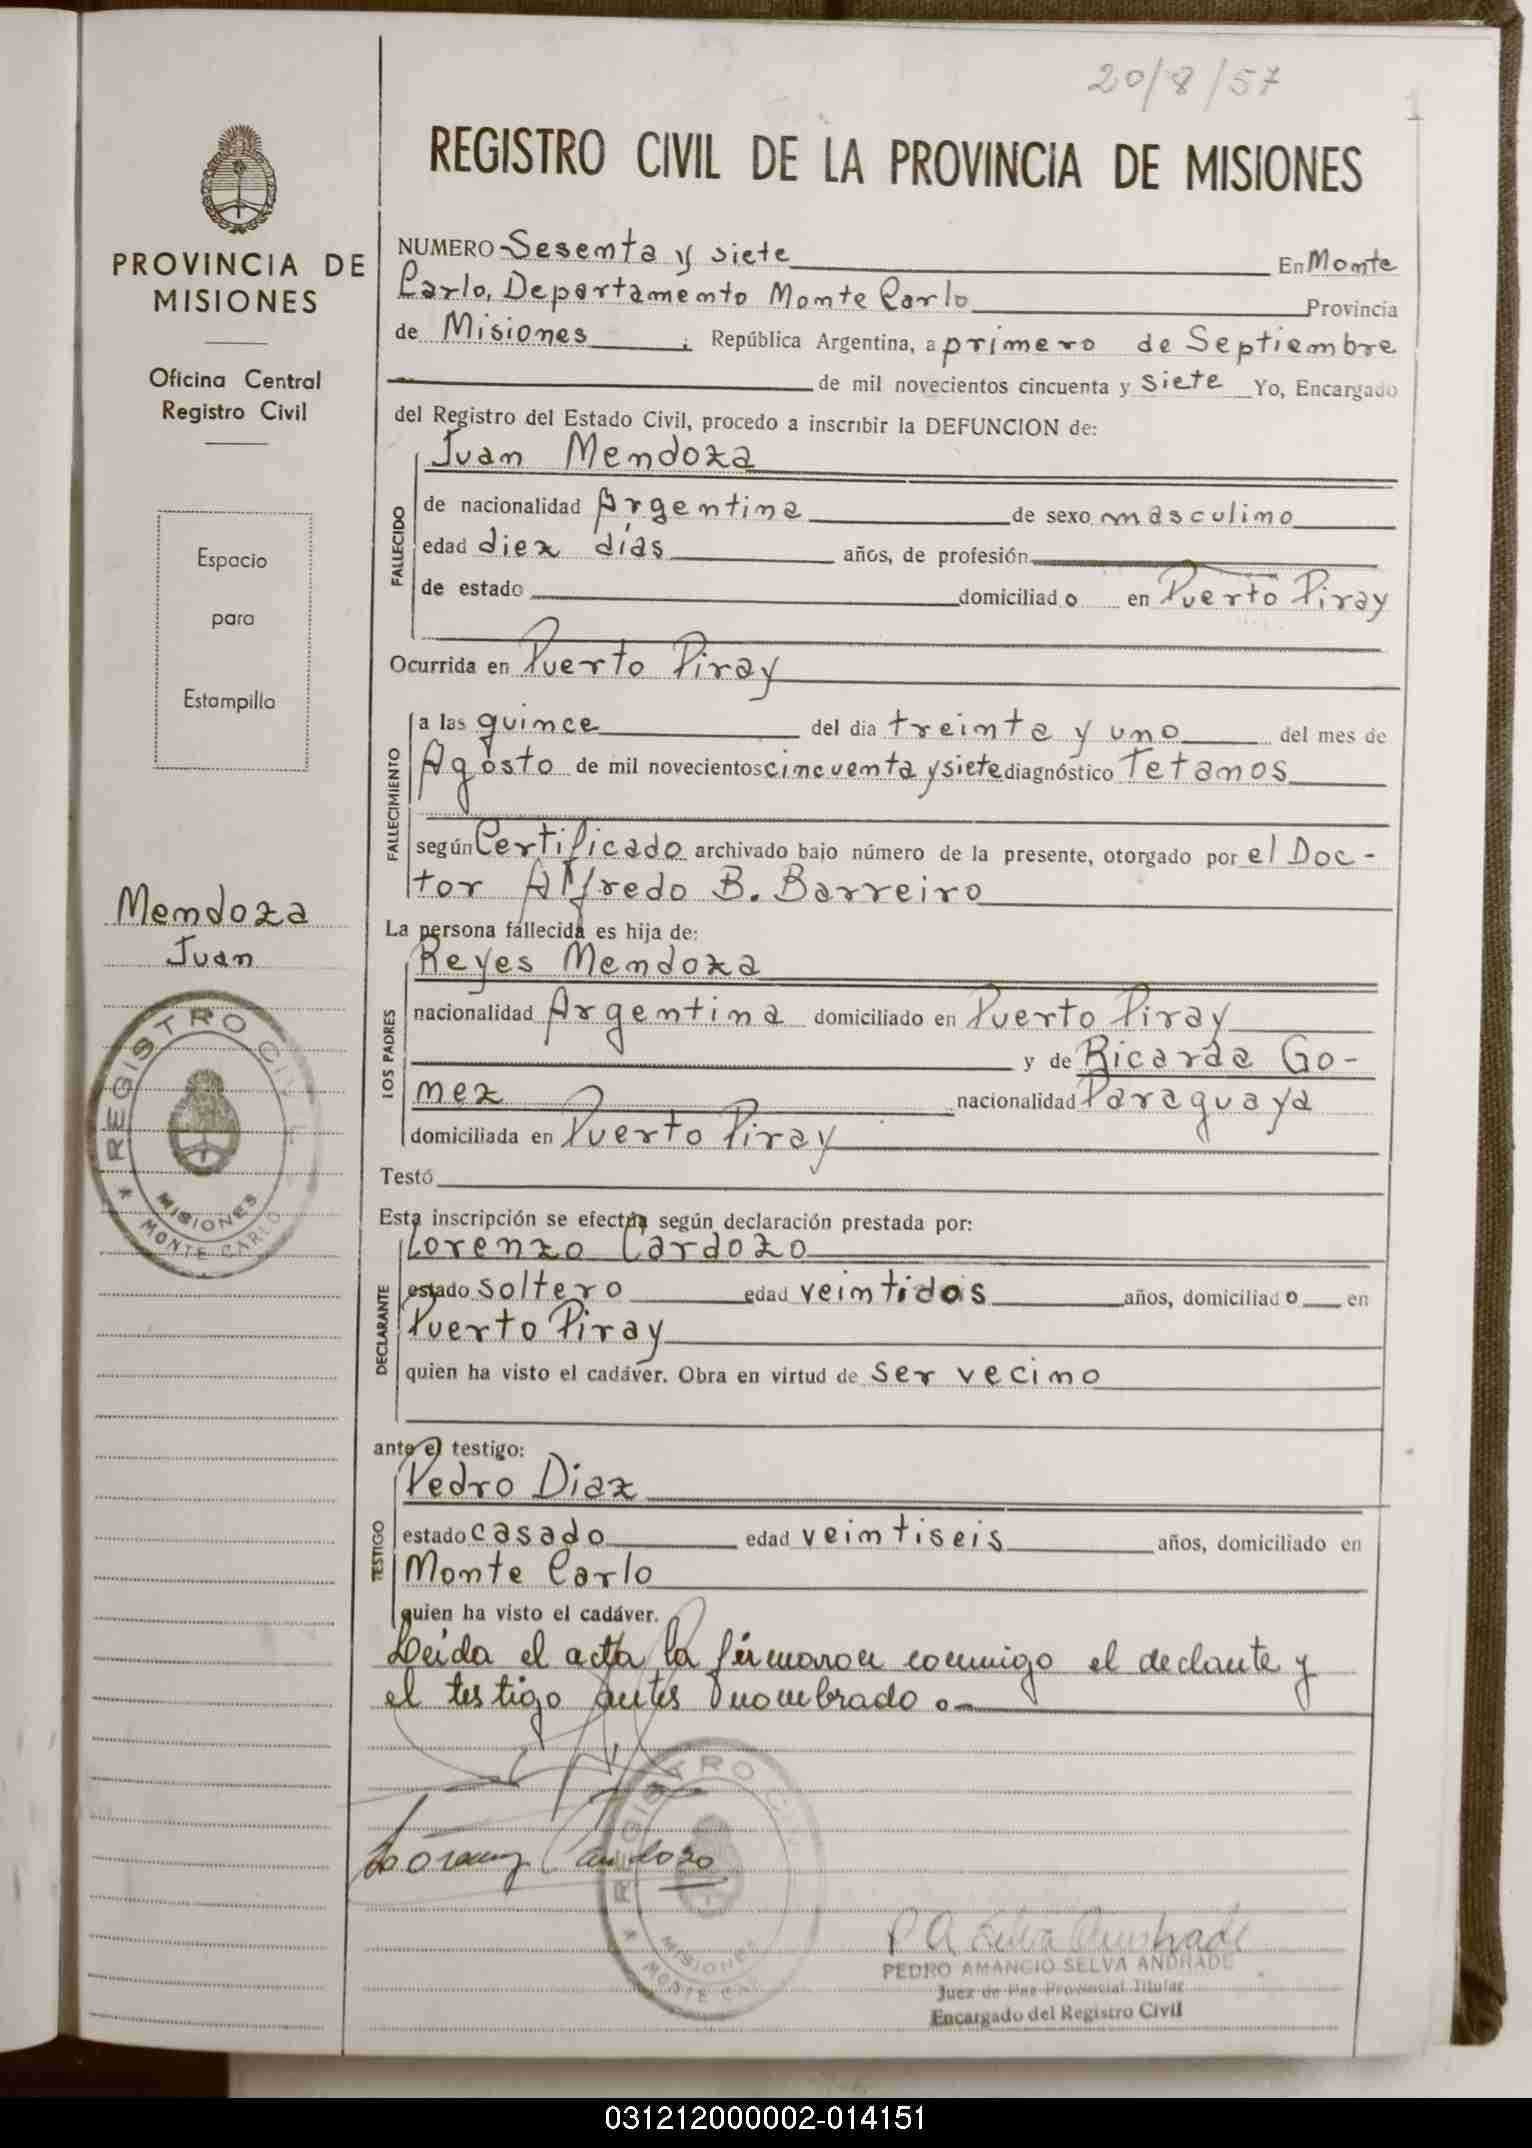 20/8/57
1
REGISTRO CIVIL DE LA PROVINCIA DE MISIONES
PROVINCIA DE
MISIONES
Oficina Central
Registro Civil
Espacio
para
Estampilla
Mendoza
Juan
REGISTRO CIVIL
MISIONES
* MONTE CARLO
NUMERO Sesenta y siete En Monte
Carlo, Departamento Monte Carlo Provincia
de Misiones ; República Argentina, a primero de Septiembre
de mil novecientos cincuenta y siete Yo, Encargado
del Registro del Estado Civil, procedo a inscribir la DEFUNCION de:
FALLECIDO
Juan Mendoza
de nacionalidad Argentina de sexo masculino
edad diez días años, de profesión
de estado domiciliado en Puerto Piray
Ocurrida en Puerto Piray
FALLECIMIENTO
a las quince del día treinta y uno del mes de
Agosto de mil novecientos cincuenta y siete diagnóstico Tetanos
según Certificado archivado bajo número de la presente, otorgado por el Doc-
tor Alfredo B. Barreiro
La persona fallecida es hija de:
LOS PADRES
Reyes Mendoza
nacionalidad Argentina domiciliado en Puerto Piray
y de Ricarda Go-
mez nacionalidad Paraguaya
domiciliada en Puerto Piray
Testó
Esta inscripción se efectúa según declaración prestada por:
DECLARANTE
Lorenzo Cardozo
estado soltero edad veintidos años, domiciliado en
Puerto Piray
quien ha visto el cadáver. Obra en virtud de ser vecino
ante el testigo:
TESTIGO
Pedro Diaz
estado casado edad veintiseis años, domiciliado en
Monte Carlo
quien ha visto el cadáver.
Leída el acta la firmaron conmigo el declante y
el testigo antes nombrado.-
Cardozo
REGISTRO CIVIL
MISIONES
* MONTE CAR
P A Selva Andrade
PEDRO AMANCIO SELVA ANDRADE
Juez de Paz Provincial Titular
Encargado del Registro Civil
031212000002-014151